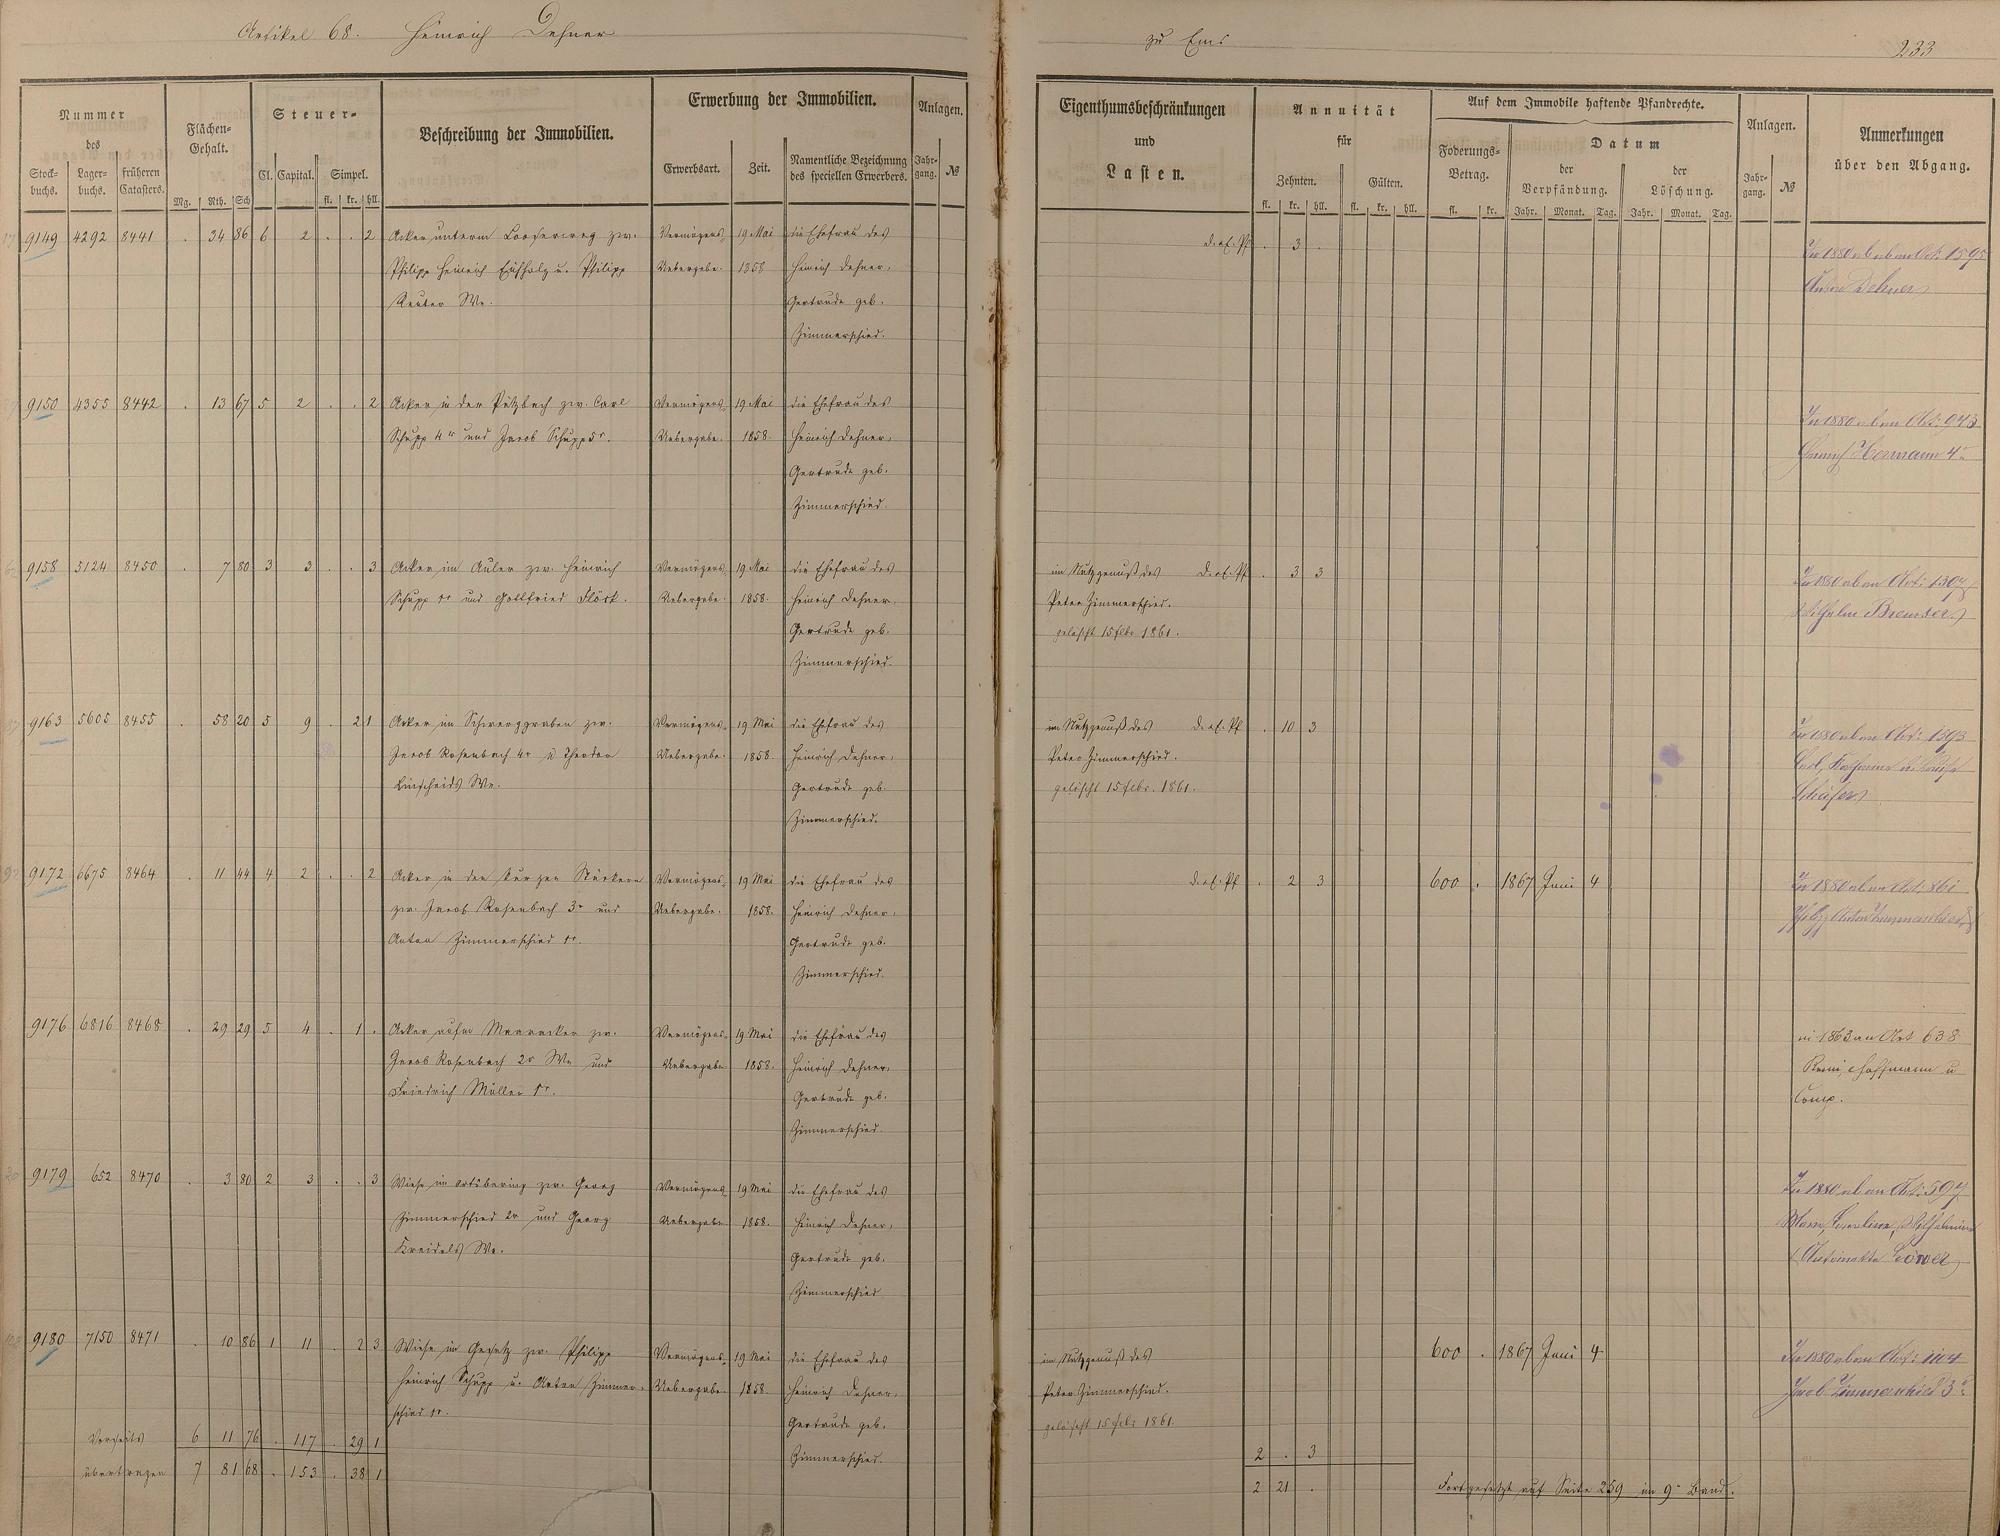 Artikel 68. Heinrich Dehner zu Ems 233
Nummer des
Stockbuchs. Lagerbuchs. früheren Catasters.
Flächen-Gehalt.
Mg. Rth. Sch
Steuer-
Cl. Capital. Simpel.
fl. kr. hll.
Beschreibung der Immobilien.
Erwerbung der Immobilien.
Erwerbsart. Zeit. Namentliche Bezeichnung des speciellen Erwerbers.
Anlagen.
Jahrgang. №
Eigenthumsbeschränkungen
und
Lasten.
Annuität
für
Zehnten. Gülten.
fl. kr. hll. fl. kr. hll.
Auf dem Immobile haftende Pfandrechte.
Foderungs-Betrag. fl. kr.
Datum
der Verpfändung. der Löschung.
Jahr. Monat. Tag. Jahr. Monat. Tag.
Anlagen.
Jahrgang. №
Anmerkungen
über den Abgang.
9149 4292 8441 . 34 86 6 2 . . 2 Acker unterm zw. Vermögens- 19 Mai die Ehefrau des . 3 . In 1880 ab an Art. 1595
Philipp Heinrich Eichholz u. Philipp Uebergabe. 1858 Heinrich Dehner, Dehner
Reuter We. Gertrude geb.
Zimmerschied.
9150 4355 8442 . 13 67 5 2 . . 2 Acker in der Pitzbach zw. Carl Vermögens- 19 Mai die Ehefrau des In 1880 ab an Art. 943
Schupp 4r und Jacob Schupp 5r. Uebergabe. 1858. Heinrich Dehner, Heinrich Hermann 4r
Gertrude geb.
Zimmerschied.
9158 5124 8450 . 7 80 3 3 . . 3 Acker im Auler zw. Heinrich Vermögens- 19 Mai die Ehefrau des im Nutzgenuß des . 3 3 In 1880 ab an Art:
Schupp 1r und Gottfried Flöck. Uebergabe. 1858. Heinrich Dehner, Peter Zimmerschied. Wilhelm
Gertrude geb. gelöscht 15 febr 1861.
Zimmerschied.
9163 5605 8455 . 58 20 5 9 . 2 1 Acker im zw. Vermögens- 19 Mai die Ehefrau des im Nutzgenuß des . 10 3 In 1880 ab an Art: 1393
Jacob Rosenbach 4r u Theodor Uebergabe. 1858. Heinrich Dehner, Peter Zimmerschied. Carl, Katharina
Linscheids We. Gertrude geb. gelöscht 15 febr. 1861. Schäfer
Zimmerschied.
9172 6675 8464 . 11 44 4 2 . . 2 Acker in den kurzen Vermögens- 19 Mai die Ehefrau des . 2 3 600 . 1867 Juni 4 In 1880 ab an Art: 861
zw. Jacob Rosenbach 3r und Uebergabe. 1858. Heinrich Dehner, Philipp Anton Zimmerschied
Anton Zimmerschied 1r. Gertrude geb.
Zimmerschied.
9176 6816 8468 . 29 29 5 4 . 1 . Acker aufm zw. Vermögens- 19 Mai die Ehefrau des in 1863 an Art 638
Jacob Rosenbach 2r We und Uebergabe 1858. Heinrich Dehner, Hoffmann u
Friedrich Müller 1r. Gertrude geb. Comp.
Zimmerschied.
9179 652 8470 . 3 80 2 3 . . 3 Wiese im Ortsbering zw. Georg Vermögens- 19 Mai die Ehefrau des In 1880 ab an Art: 597
Zimmerschied 2r und Georg Uebergabe. 1858. Heinrich Dehner, Wilhelmine
Kreidels We. Gertrude geb. Antoinette
Zimmerschied
9180 7150 8471 . 10 86 1 11 . 2 3 Wiese im zw. Philipp Vermögens- 19 Mai die Ehefrau des im Nutzgenuß des 600 . 1867 Juni 4 In 1880 ab an Art: 1104
Heinrich Schupp u. Anton Zimmer- Uebergabe. 1858. Heinrich Dehner, Peter Zimmerschied. Jacob Zimmerschied 3r
schied 1r. Gertrude geb. gelöscht 15 febr 1861.
Zimmerschied.
Vorseits 6 11 76 . 117 . 29 1 2 . 3
übertragen 7 81 68 . 153 . 38 1 2 21 . Fortgesetzt auf Seite 259 im 9r Band.